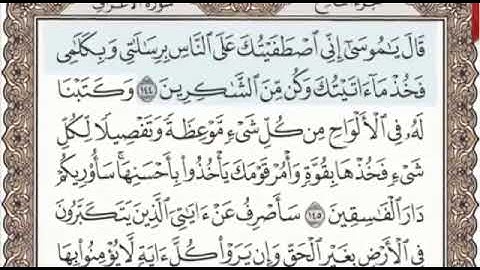 قَالَ يَٰمُوسَىٰٓ إِنِّي ٱصۡطَفَيۡتُكَ عَلَى ٱلنَّاسِ بِرِسَٰلَٰتِي وَبِكَلَٰمِي
فَخُذۡ مَآ ءَاتَيۡتُكَ وَكُن مِّنَ ٱلشَّٰكِرِينَ ١٤٤ وَكَتَبۡنَا
لَهُۥ فِي ٱلۡأَلۡوَاحِ مِن كُلِّ شَيۡءٖ مَّوۡعِظَةٗ وَتَفۡصِيلٗا لِّكُلِّ
شَيۡءٖ فَخُذۡهَا بِقُوَّةٖ وَأۡمُرۡ قَوۡمَكَ يَأۡخُذُواْ بِأَحۡسَنِهَاۚ سَأُوْرِيكُمۡ
دَارَ ٱلۡفَٰسِقِينَ ١٤٥ سَأَصۡرِفُ عَنۡ ءَايَٰتِيَ ٱلَّذِينَ يَتَكَبَّرُونَ
فِي ٱلۡأَرۡضِ بِغَيۡرِ ٱلۡحَقِّ وَإِن يَرَوۡاْ كُلَّ ءَايَةٖ لَّا يُؤۡمِنُواْ بِهَا